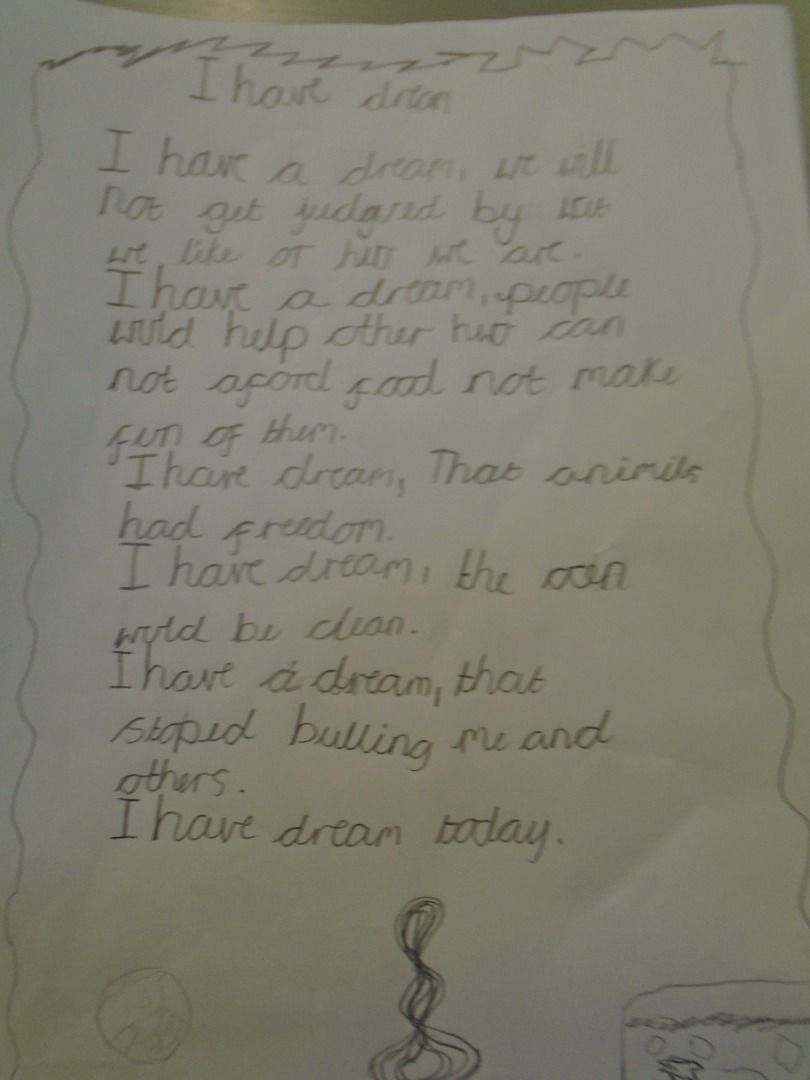 I have dream
I have a dream, we will
not get judgsed by wat
we like or hwo we are.
I have a dream, people
wuld help other hwo can
not aford food not make
fun of them.
I have dream, That animils
had freedom.
I have dream, the
wuld be clean.
I have a dream, that
stoped bulling me and
others.
I have dream today.